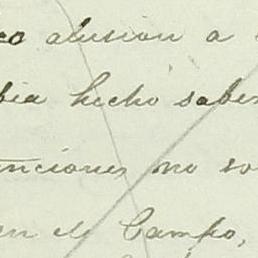 alusion a
bia hecho saber
nciones no so
en de Campo,